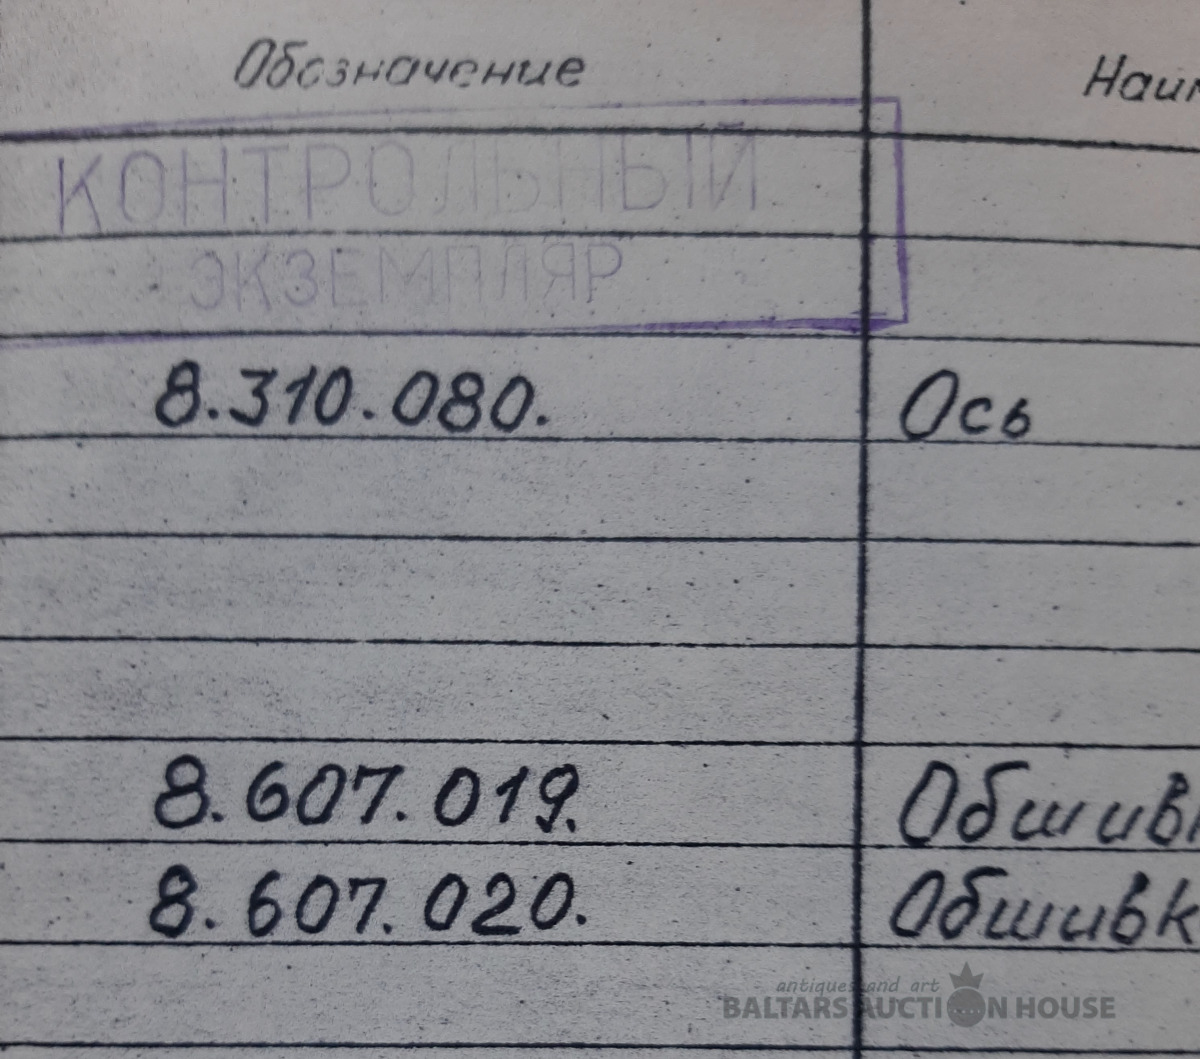 Обозначение Наим
КОНТРОЛЬНЫЙ
ЭКЗЕМПЛЯР
8.310.080. Ось
8.607.019. Обшивк
8.607.020. Обшивк
antiques and art
BALTARS AUCTION HOUSE